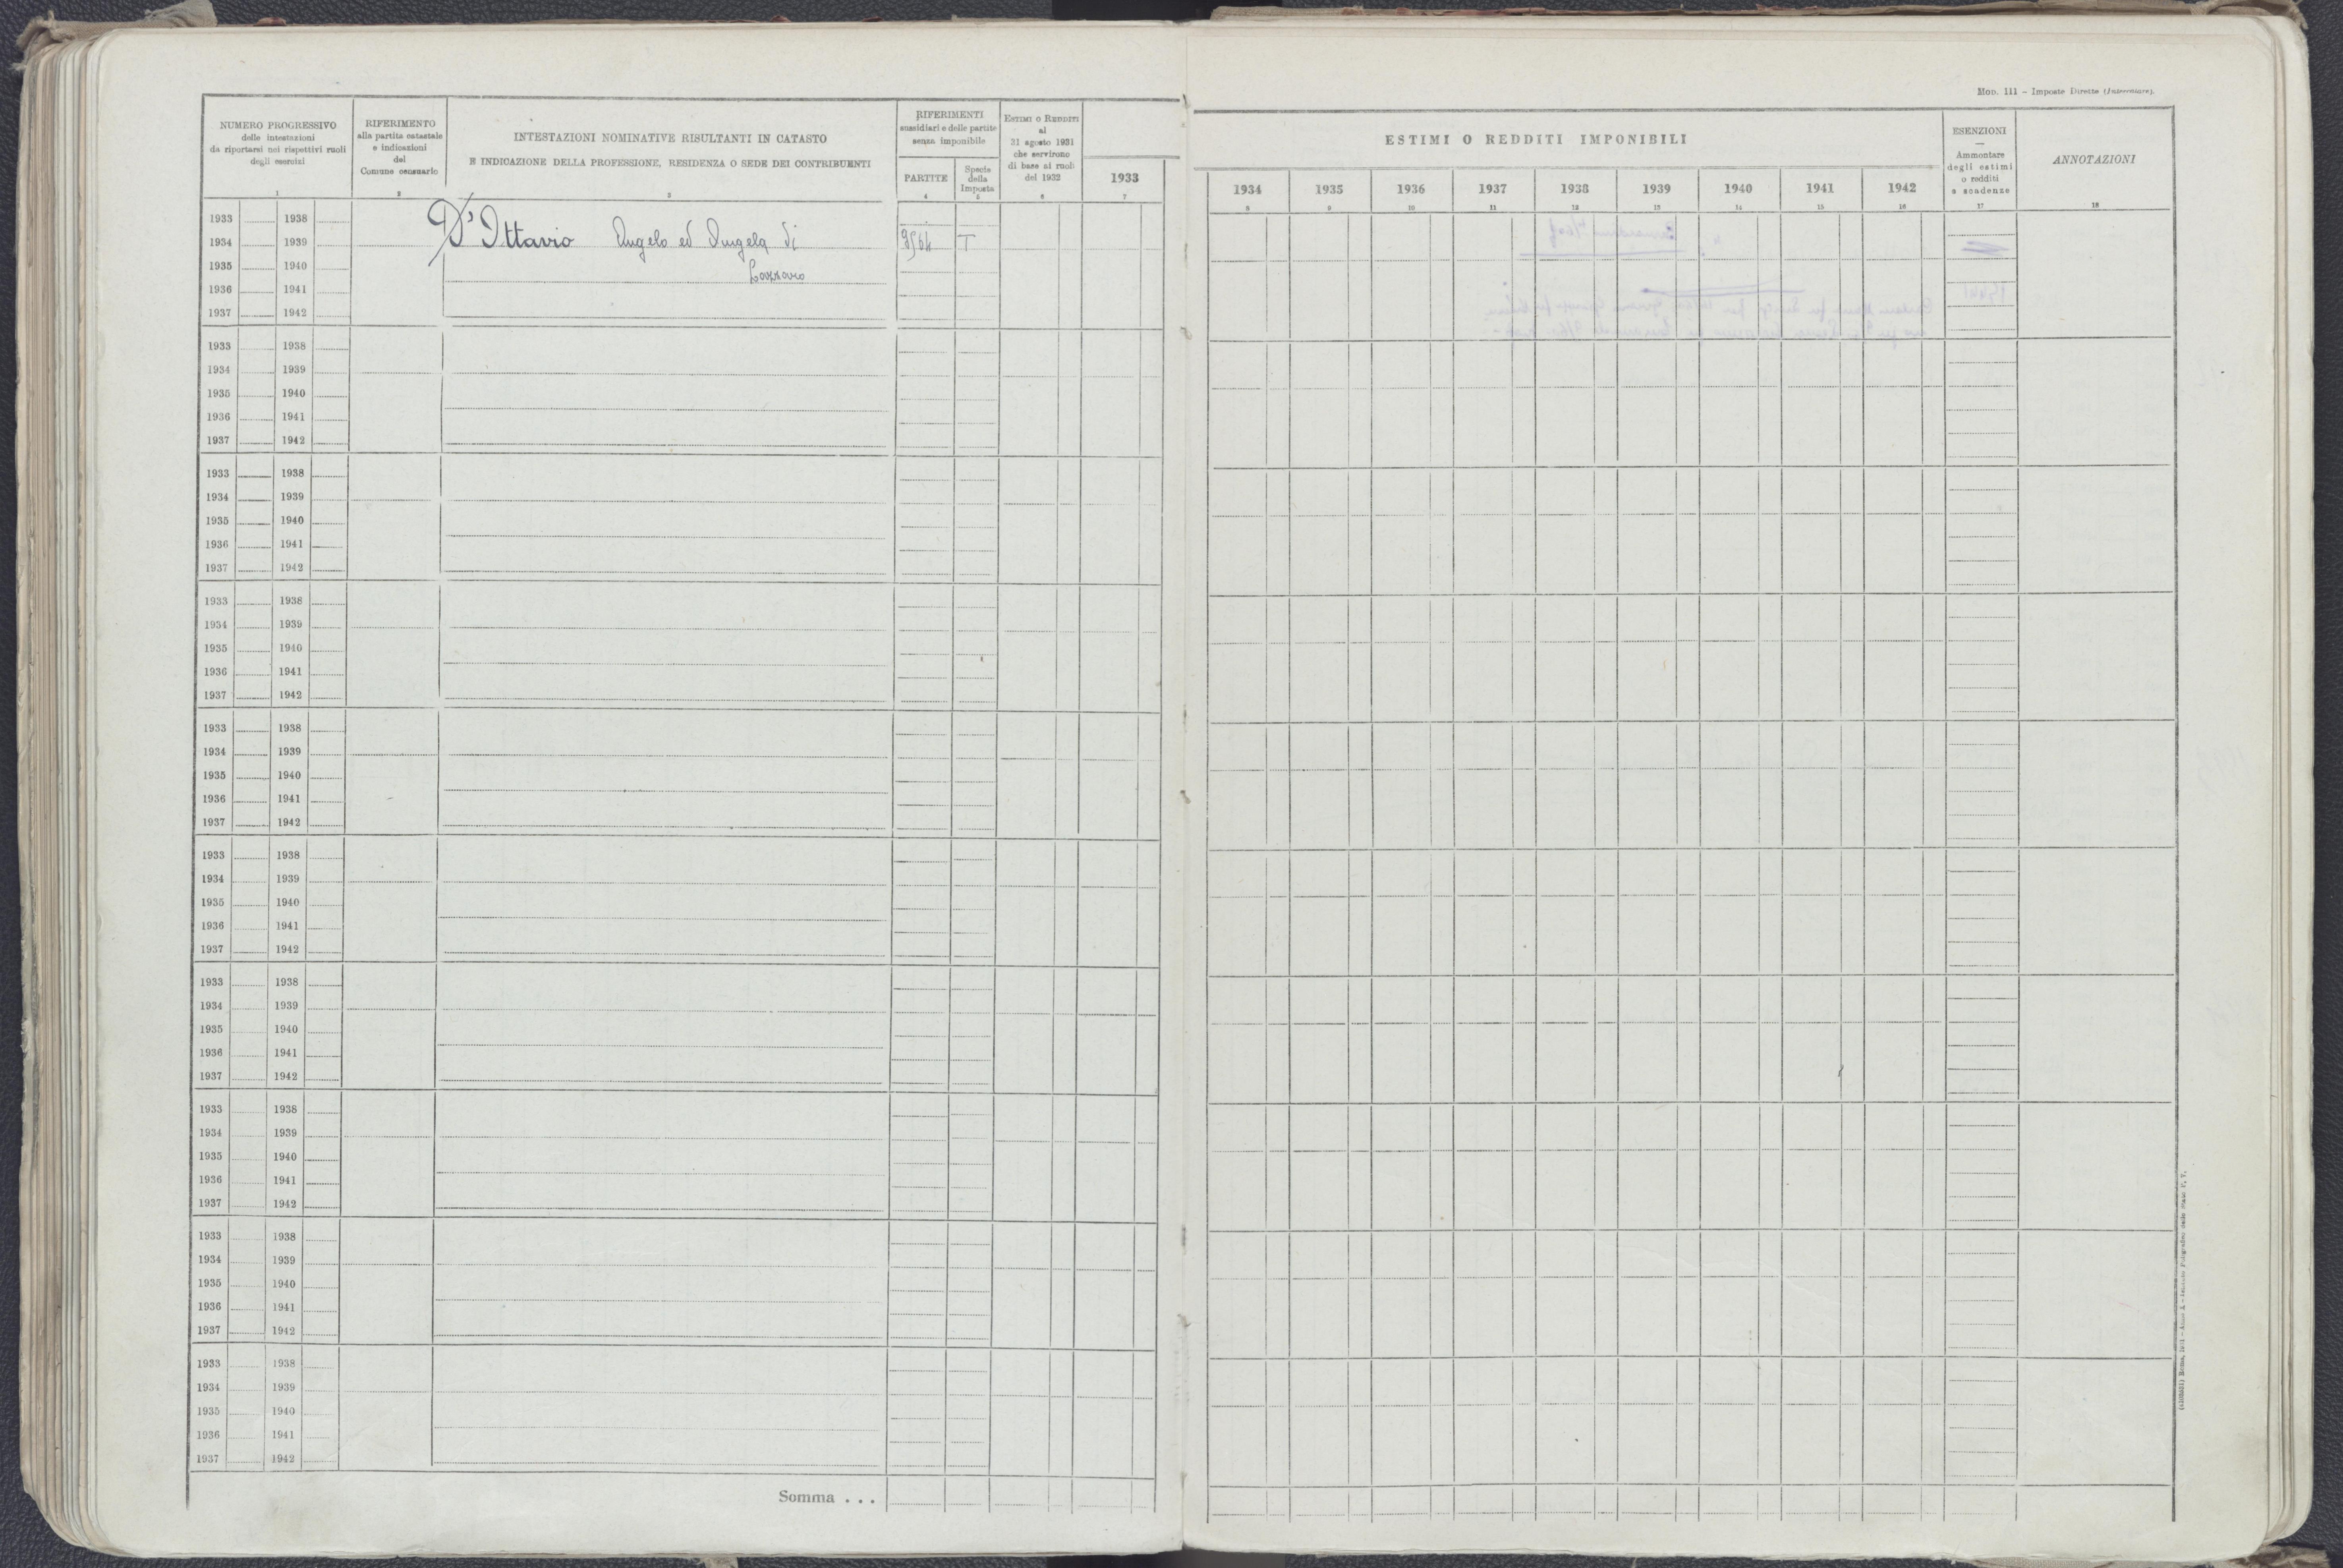 Mod. 111 – Imposte Dirette (Intercalare).
NUMERO PROGRESSIVO
delle intestazioni
da riportarsi nei rispettivi ruoli
degli esercizi
1
RIFERIMENTO
alla partita catastale
e indicazioni
del
Comune censuario
2
INTESTAZIONI NOMINATIVE RISULTANTI IN CATASTO
E INDICAZIONE DELLA PROFESSIONE, RESIDENZA O SEDE DEI CONTRIBUENTI
3
RIFERIMENTI
sussidiari e delle partite
senza imponibile
PARTITE
4
Specie
della
Imposta
5
ESTIMI O REDDITI
al
31 agosto 1931
che servirono
di base ai ruoli
del 1932
6
1933
7
ESTIMI O REDDITI IMPONIBILI
1934 1935 1936 1937 1938 1939 1940 1941 1942
8 9 10 11 12 13 14 15 16
ESENZIONI
—
Ammontare
degli estimi
o redditi
e scadenze
17
ANNOTAZIONI
18
1933 1938
1934 1939 D'Ottavio Angelo ed Angela di 9564 T
1935 1940 Lazzaro
1936 1941
1937 1942
1933 1938
1934 1939
1935 1940
1936 1941
1937 1942
1933 1938
1934 1939
1935 1940
1936 1941
1937 1942
1933 1938
1934 1939
1935 1940
1936 1941
1937 1942
1933 1938
1934 1939
1935 1940
1936 1941
1937 1942
1933 1938
1934 1939
1935 1940
1936 1941
1937 1942
1933 1938
1934 1939
1935 1940
1936 1941
1937 1942
1933 1938
1934 1939
1935 1940
1936 1941
1937 1942
1933 1938
1934 1939
1935 1940
1936 1941
1937 1942
1933 1938
1934 1939
1935 1940
1936 1941
1937 1942
Somma . . .